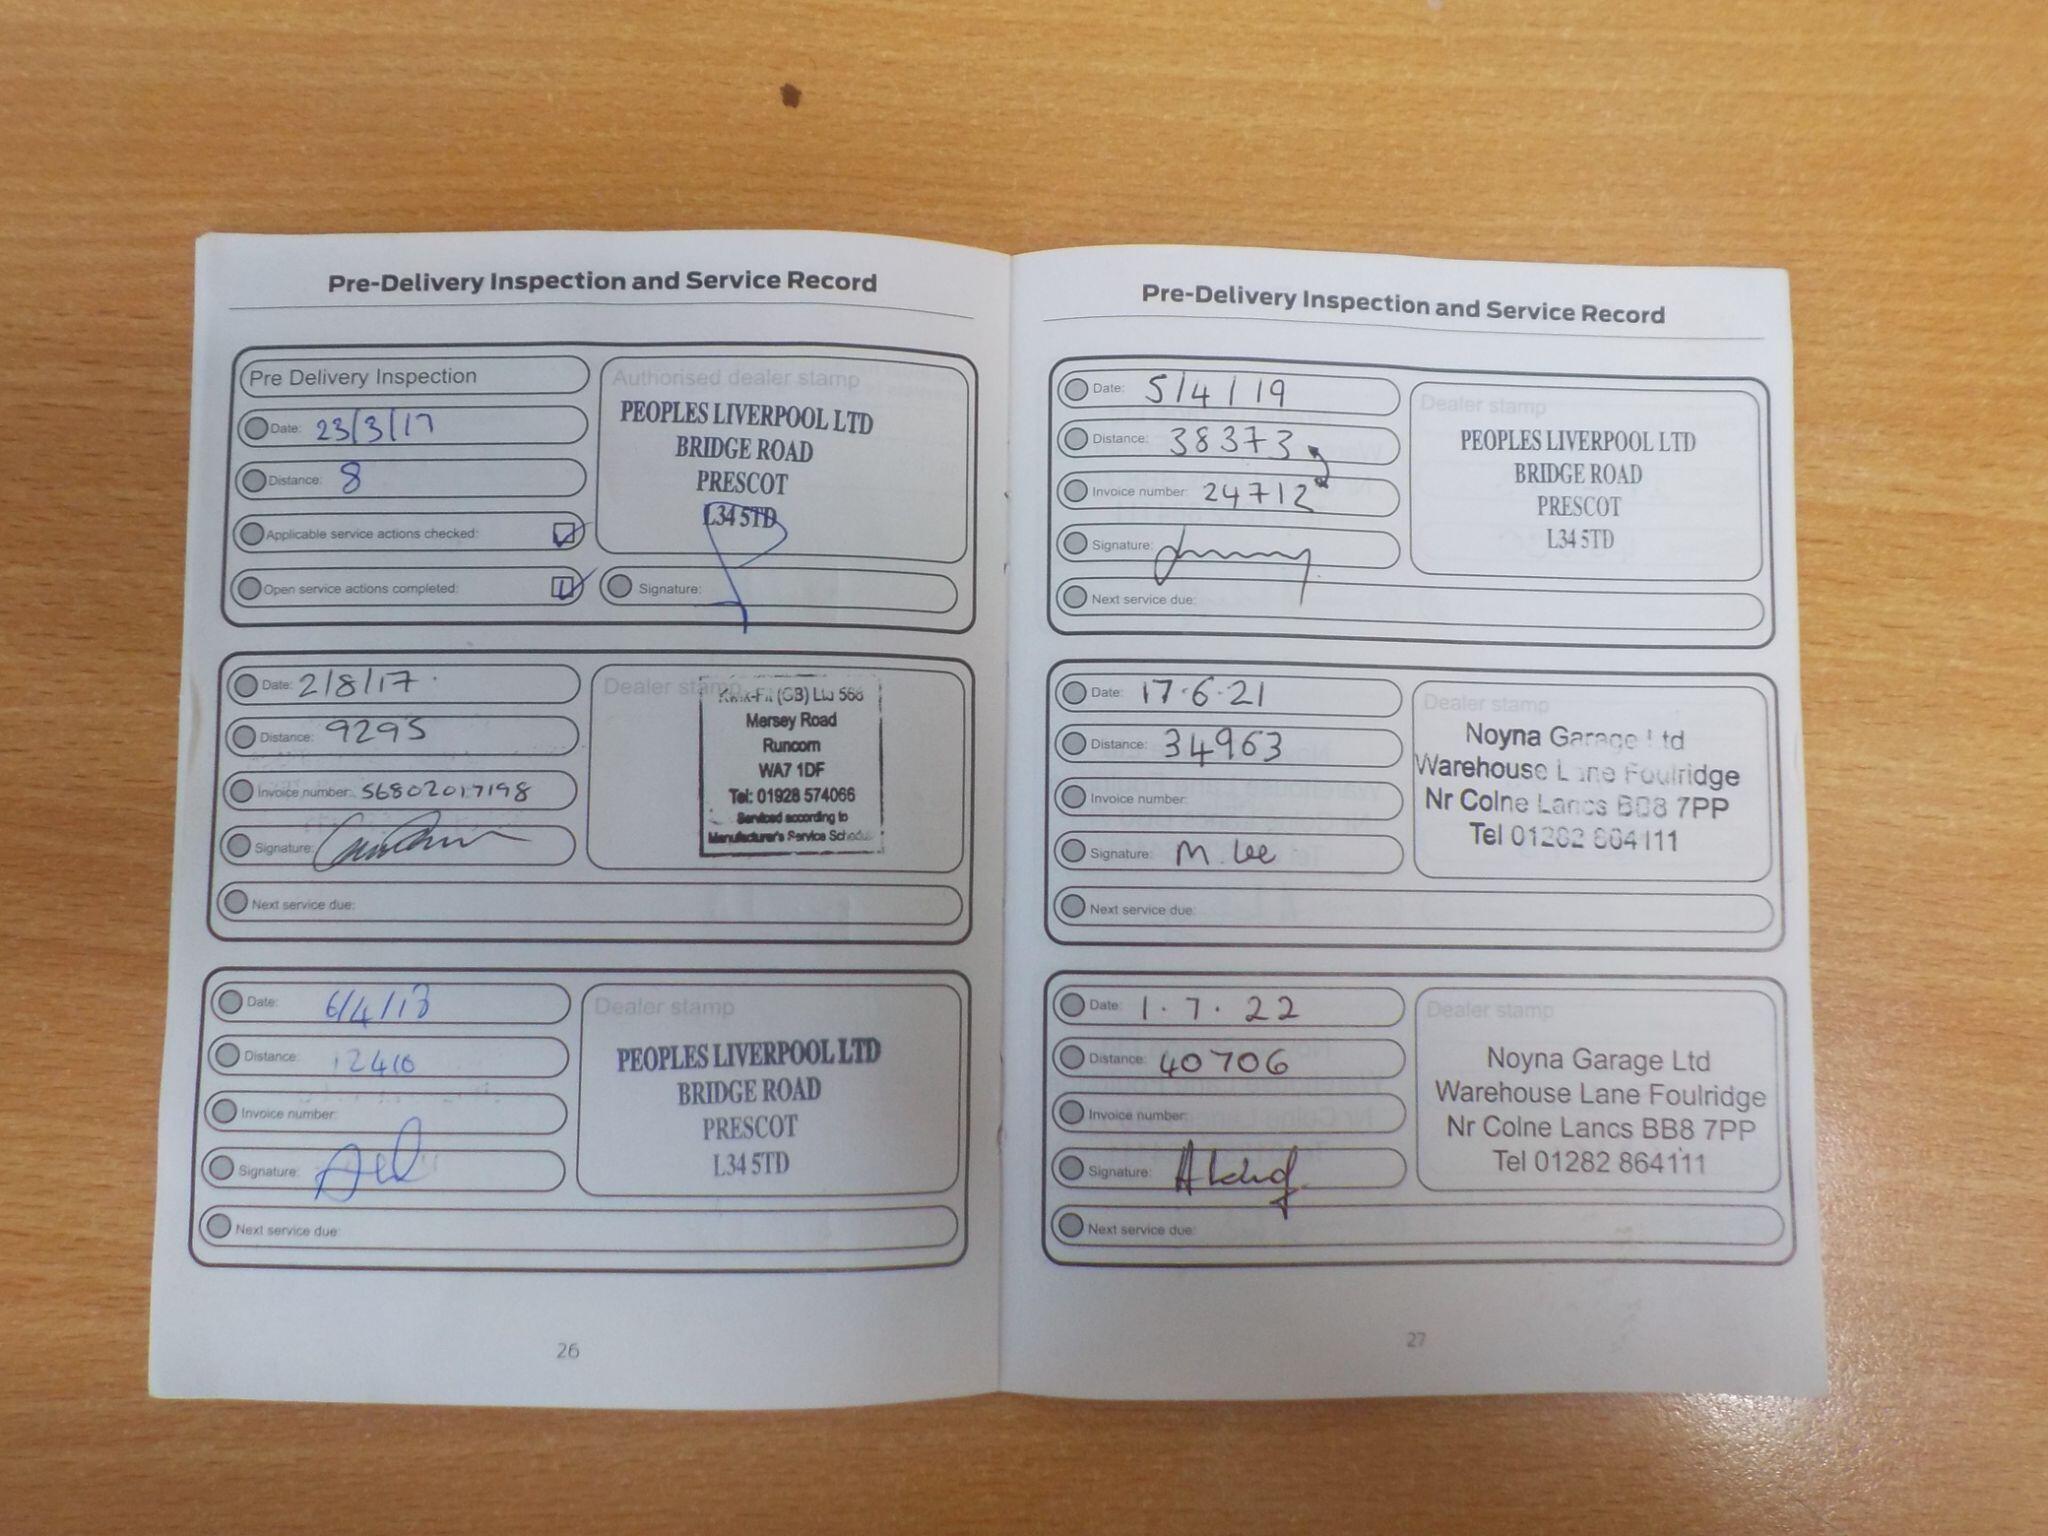 Pre-Delivery Inspection and Service Record
Pre Delivery Inspection
Date: 23/3/17
Distance: 8
Applicable service actions checked:
Open service actions completed:
Authorised dealer stamp
PEOPLES LIVERPOOL LTD
BRIDGE ROAD
PRESCOT
L34 5TD
Signature:
Date: 2/8/17
Distance: 9295
Invoice number: 56802017198
Signature:
Next service due:
Dealer stamp
Kwik-Fit (GB) Ltd 568
Mersey Road
Runcorn
WA7 1DF
Tel: 01928 574066
Serviced according to
Manufacturer's Service Schedule
Date: 6/4/18
Distance: 12410
Invoice number:
Signature:
Next service due:
Dealer stamp
PEOPLES LIVERPOOL LTD
BRIDGE ROAD
PRESCOT
L34 5TD
26
Pre-Delivery Inspection and Service Record
Date: 5/4/19
Distance: 38373
Invoice number: 24712
Signature:
Next service due:
Dealer stamp
PEOPLES LIVERPOOL LTD
BRIDGE ROAD
PRESCOT
L34 5TD
Date: 17.6.21
Distance: 34963
Invoice number:
Signature: M. Lee
Next service due:
Dealer stamp
Noyna Garage Ltd
Warehouse Lane Foulridge
Nr Colne Lancs BB8 7PP
Tel 01282 864111
Date: 1.7.22
Distance: 40706
Invoice number:
Signature:
Next service due:
Dealer stamp
Noyna Garage Ltd
Warehouse Lane Foulridge
Nr Colne Lancs BB8 7PP
Tel 01282 864111
27